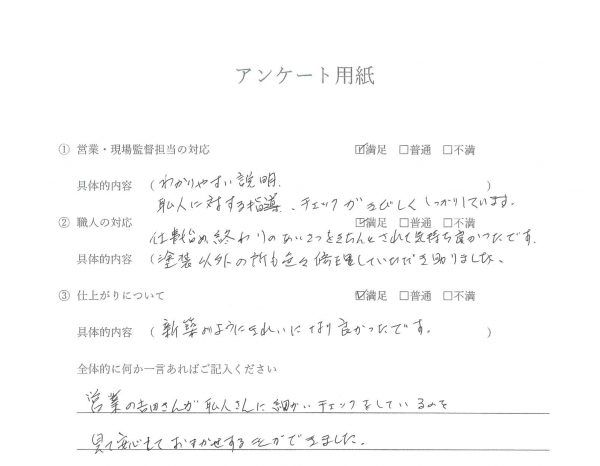 アンケート用紙
① 営業・現場監督担当の対応 ☑満足 □普通 □不満
具体的内容 (わかりやすい説明、 )
職人に対する指導、チェックがきびしくしっかりしています。
② 職人の対応 ☑満足 □普通 □不満
仕事始め終わりのあいさつをきちんとされて気持ち良かったです。
具体的内容 (塗装以外の所も色々修理していただき助りました。
③ 仕上がりについて ☑満足 □普通 □不満
具体的内容 (新築のようにきれいになり良かったです。 )
全体的に何か一言あればご記入ください
営業の吉田さんが職人さんに細かいチェックをしているのを
見て安心しておまかせする事ができました。